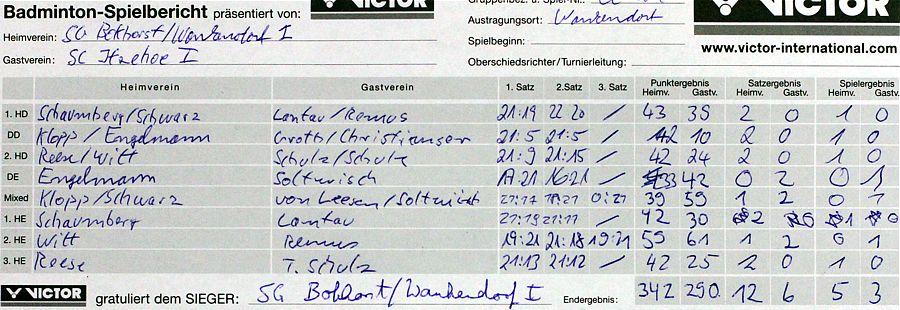 Badminton-Spielbericht präsentiert von: VICTOR
Gruppenbez. u. Spiel-Nr.:
VICTOR
Heimverein: SG Bokhorst/Wankendorf I
Austragungsort: Wankendorf
Gastverein: SC Itzehoe I
Spielbeginn:
www.victor-international.com
Oberschiedsrichter/Turnierleitung:
Heimverein Gastverein 1. Satz 2. Satz 3. Satz Punktergebnis Heimv. Gastv. Satzergebnis Heimv. Gastv. Spielergebnis Heimv. Gastv.
1. HD Schaumberg/Schwarz Lantau/Remus 21:19 22 20 / 43 39 2 0 1 0
DD Klopp/Engelmann Groth/Christiansen 21:5 21:5 / 42 10 2 0 1 0
2. HD Reese/Witt Schulz/Schulz 21:9 21:15 / 42 24 2 0 1 0
DE Engelmann Solterisch 17:21 16:21 / 33 42 0 2 0 1
Mixed Klopp/Schwarz von Leesen/ 39 59 1 2 0 1
1. HE Schaumberg Lantau / 42 30 2 0 1 0
2. HE Witt Remus 19:21 21:18 19:21 59 61 1 2 0 1
3. HE Reese T. Schulz 21:13 21:12 / 42 25 2 0 1 0
VICTOR gratuliert dem SIEGER: SG Bokhorst/Wankendorf I Endergebnis: 342 290 12 6 5 3